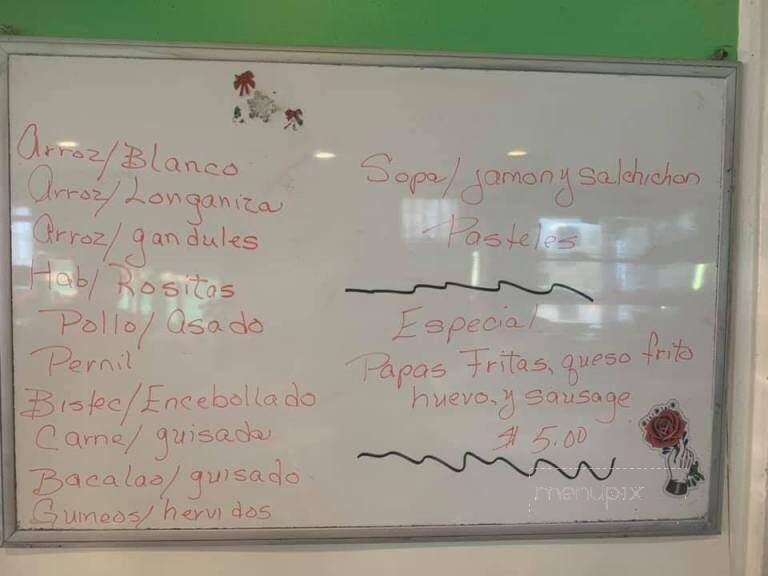 Arroz/Blanco
Arroz/Longaniza
Arroz/gandules
Hab/Rositas
Pollo/Asado
Pernil
Bistec/Encebollado
Carne/guisada
Bacalao/guisado
Guineos/hervidos
Sopa/jamon y salchichon
Pasteles
Especial
Papas Fritas, queso frito
huevo, y sausage
$5.00
menupix